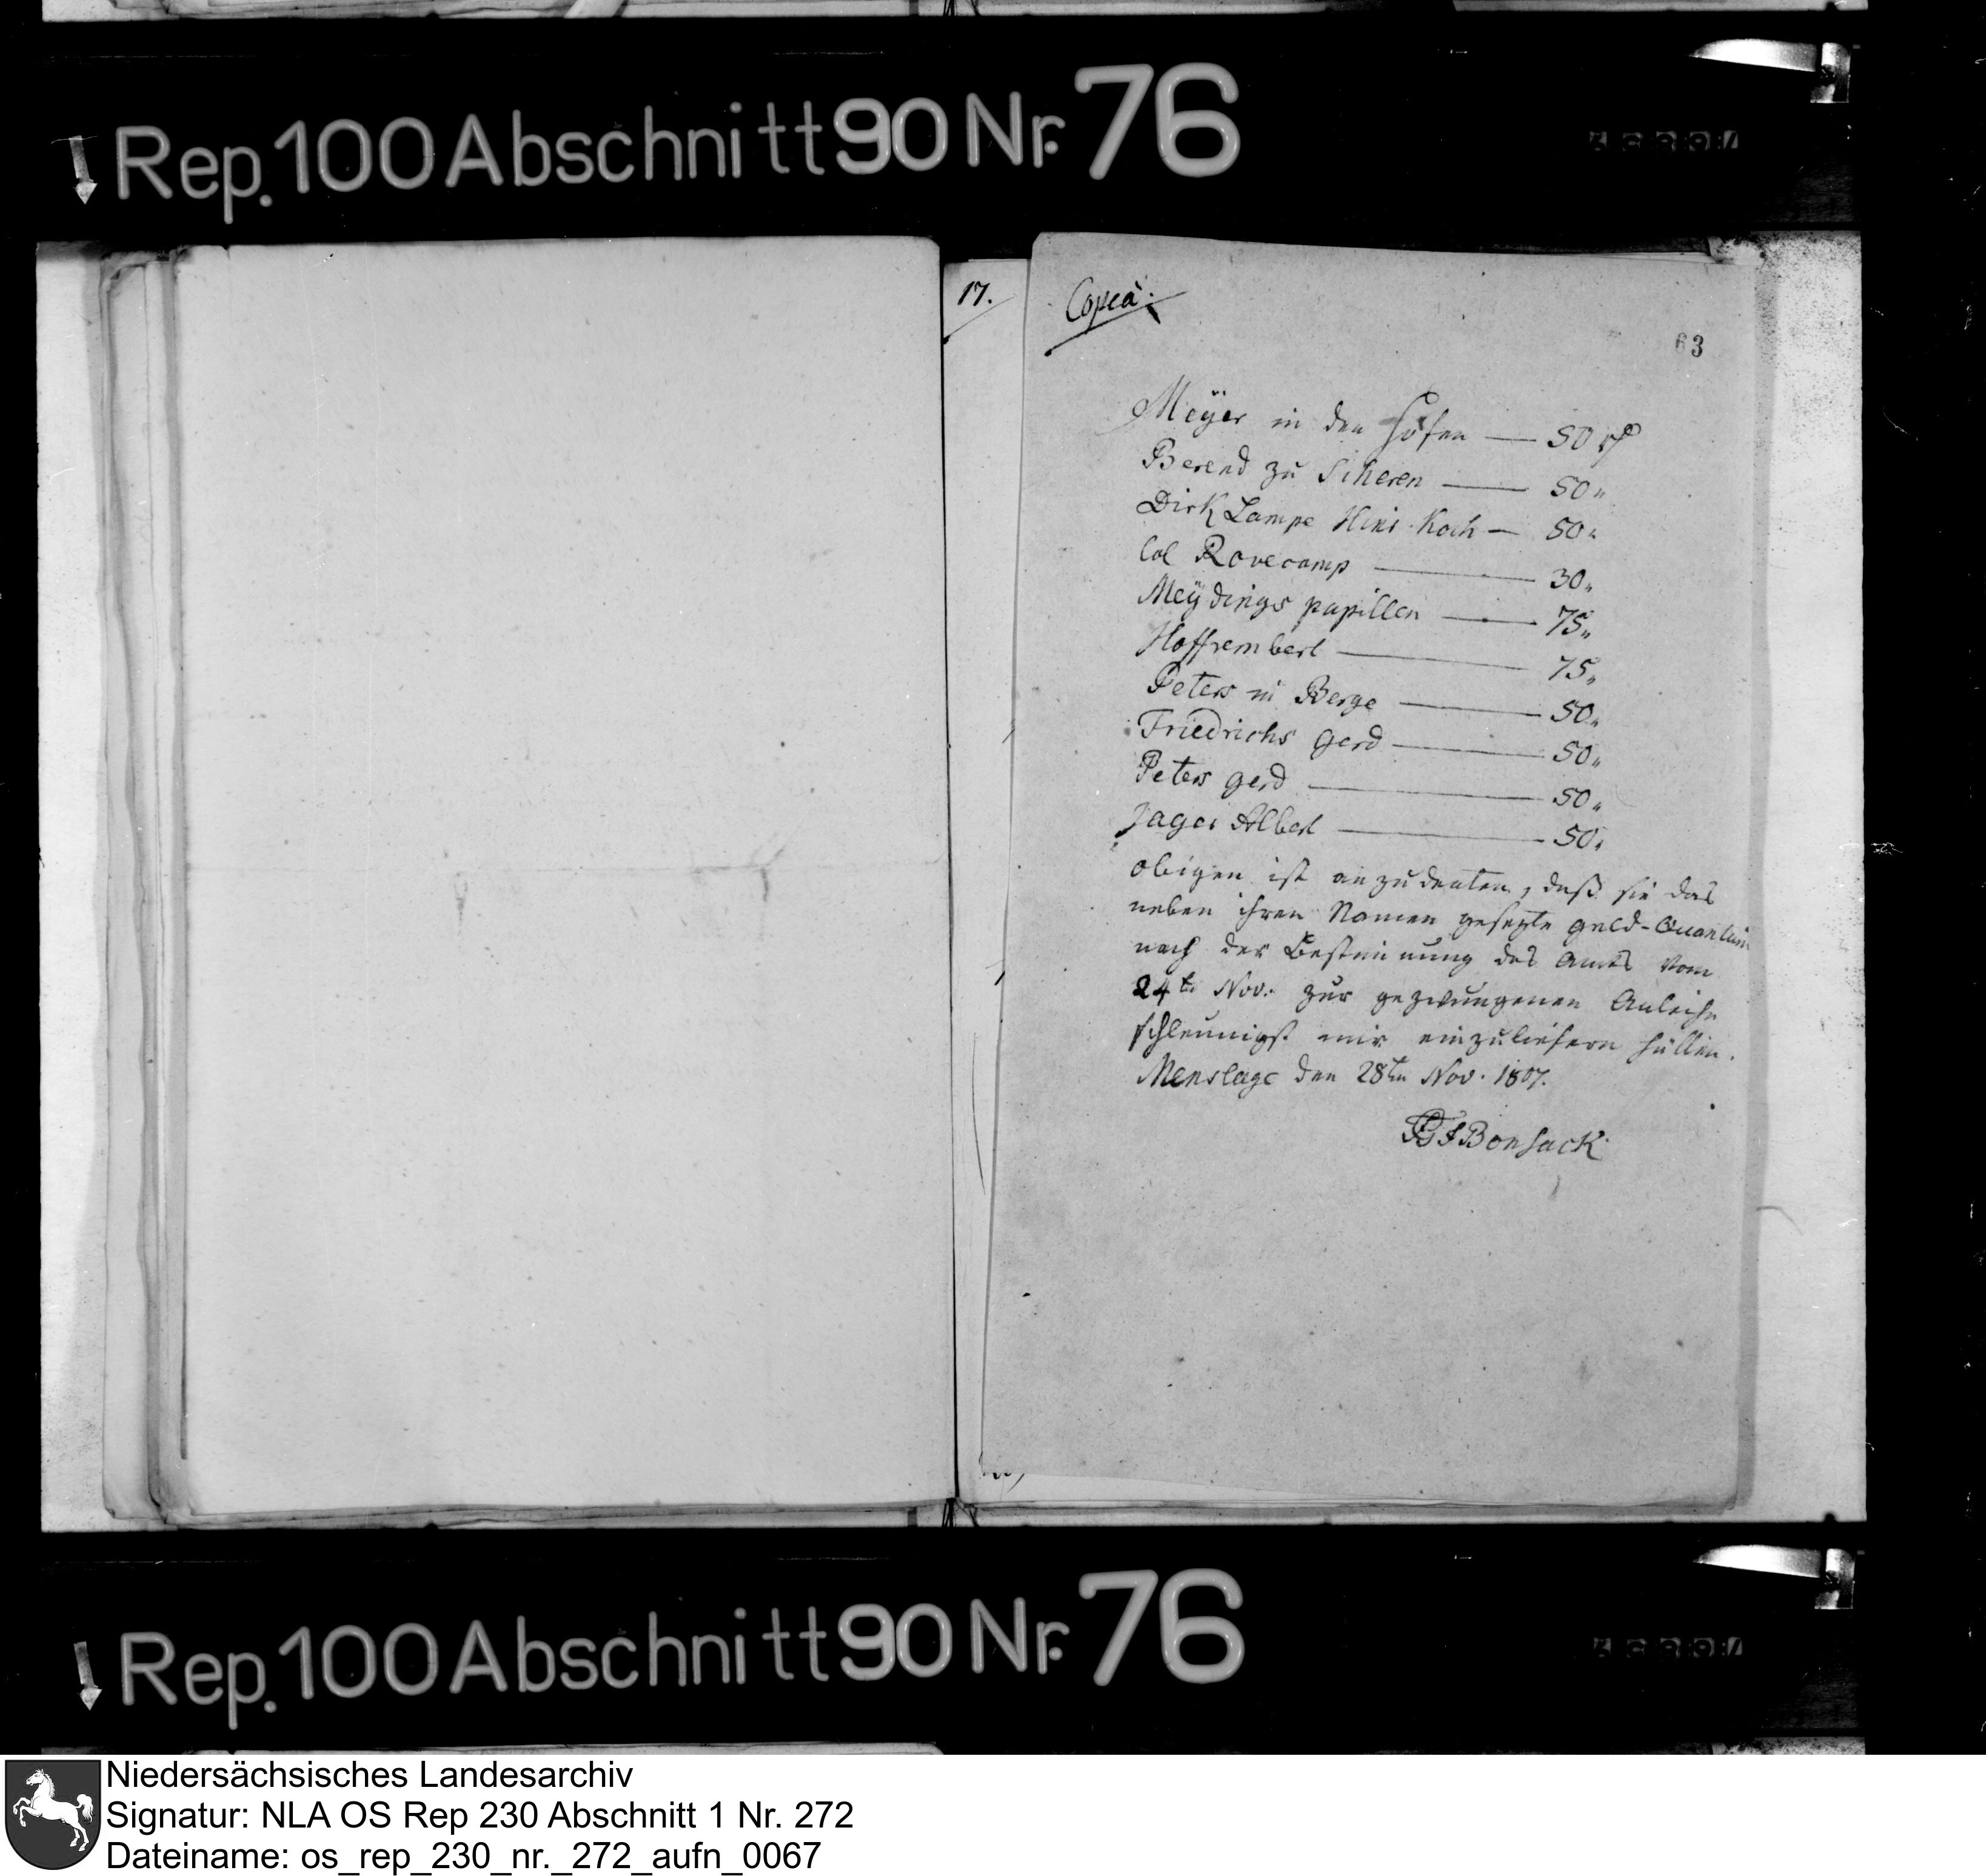 Rep. 100 Abschnitt 90 Nr. 76
17.
Copia.
63
Meÿer in den Höfen — 50 rth
Berend zu Scheren — 50 „
Dirk Lampe Hinr Koch — 50 „
Col Rovecamp — 30 „
Meÿdings papillen — 75 „
Hoffrembert — 75 „
Peters in Berge — 50 „
Friedrichs Gerd — 50 „
Peters Gerd — 50 „
Jager Albert — 50 „
obigen ist anzudeuten, daß sie das
neben ihren Namen gesezte Geld-Quantum
nach der Bestimmung des Amts vom
24ten Nov. zur gezwungenen Anleihe
schleunigst mir einzuliefern hätten.
Menslage den 28ten Nov. 1807.
Bonsack
Rep. 100 Abschnitt 90 Nr. 76
Niedersächsisches Landesarchiv
Signatur: NLA OS Rep 230 Abschnitt 1 Nr. 272
Dateiname: os_rep_230_nr._272_aufn_0067